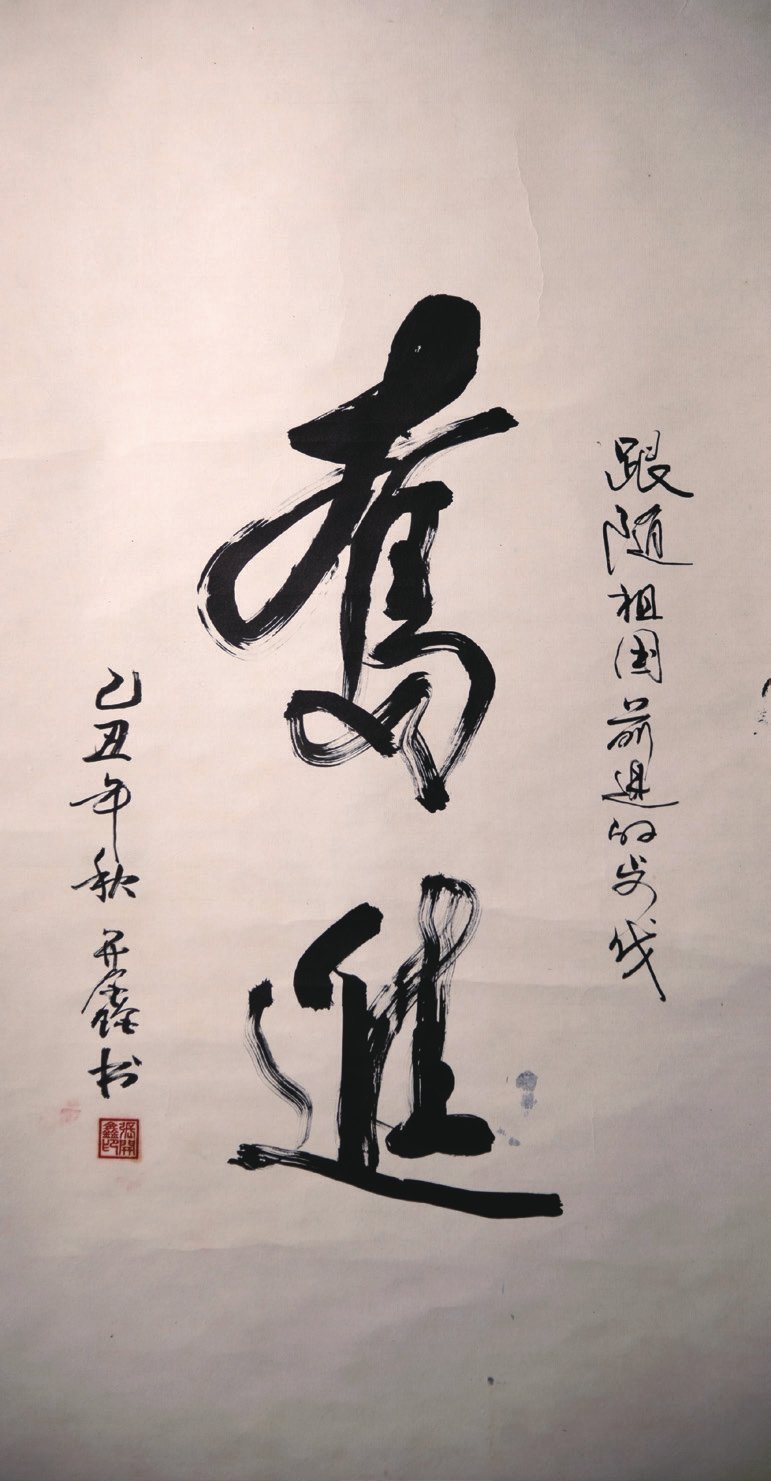 跟随祖国前进的步伐
奮進
己丑年秋 开鑫书
張開鑫印